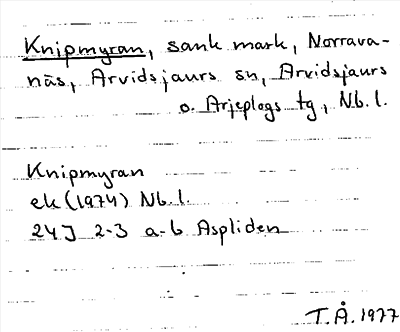 Knipmyran, sank mark, Norrava-
näs, Arvidsjaurs sn, Arvidsjaurs
o. Arjeplogs tg, Nb. l.
Knipmyran
ek (1974) Nb. l.
24J 2-3 a-b Aspliden
T.Å. 1977